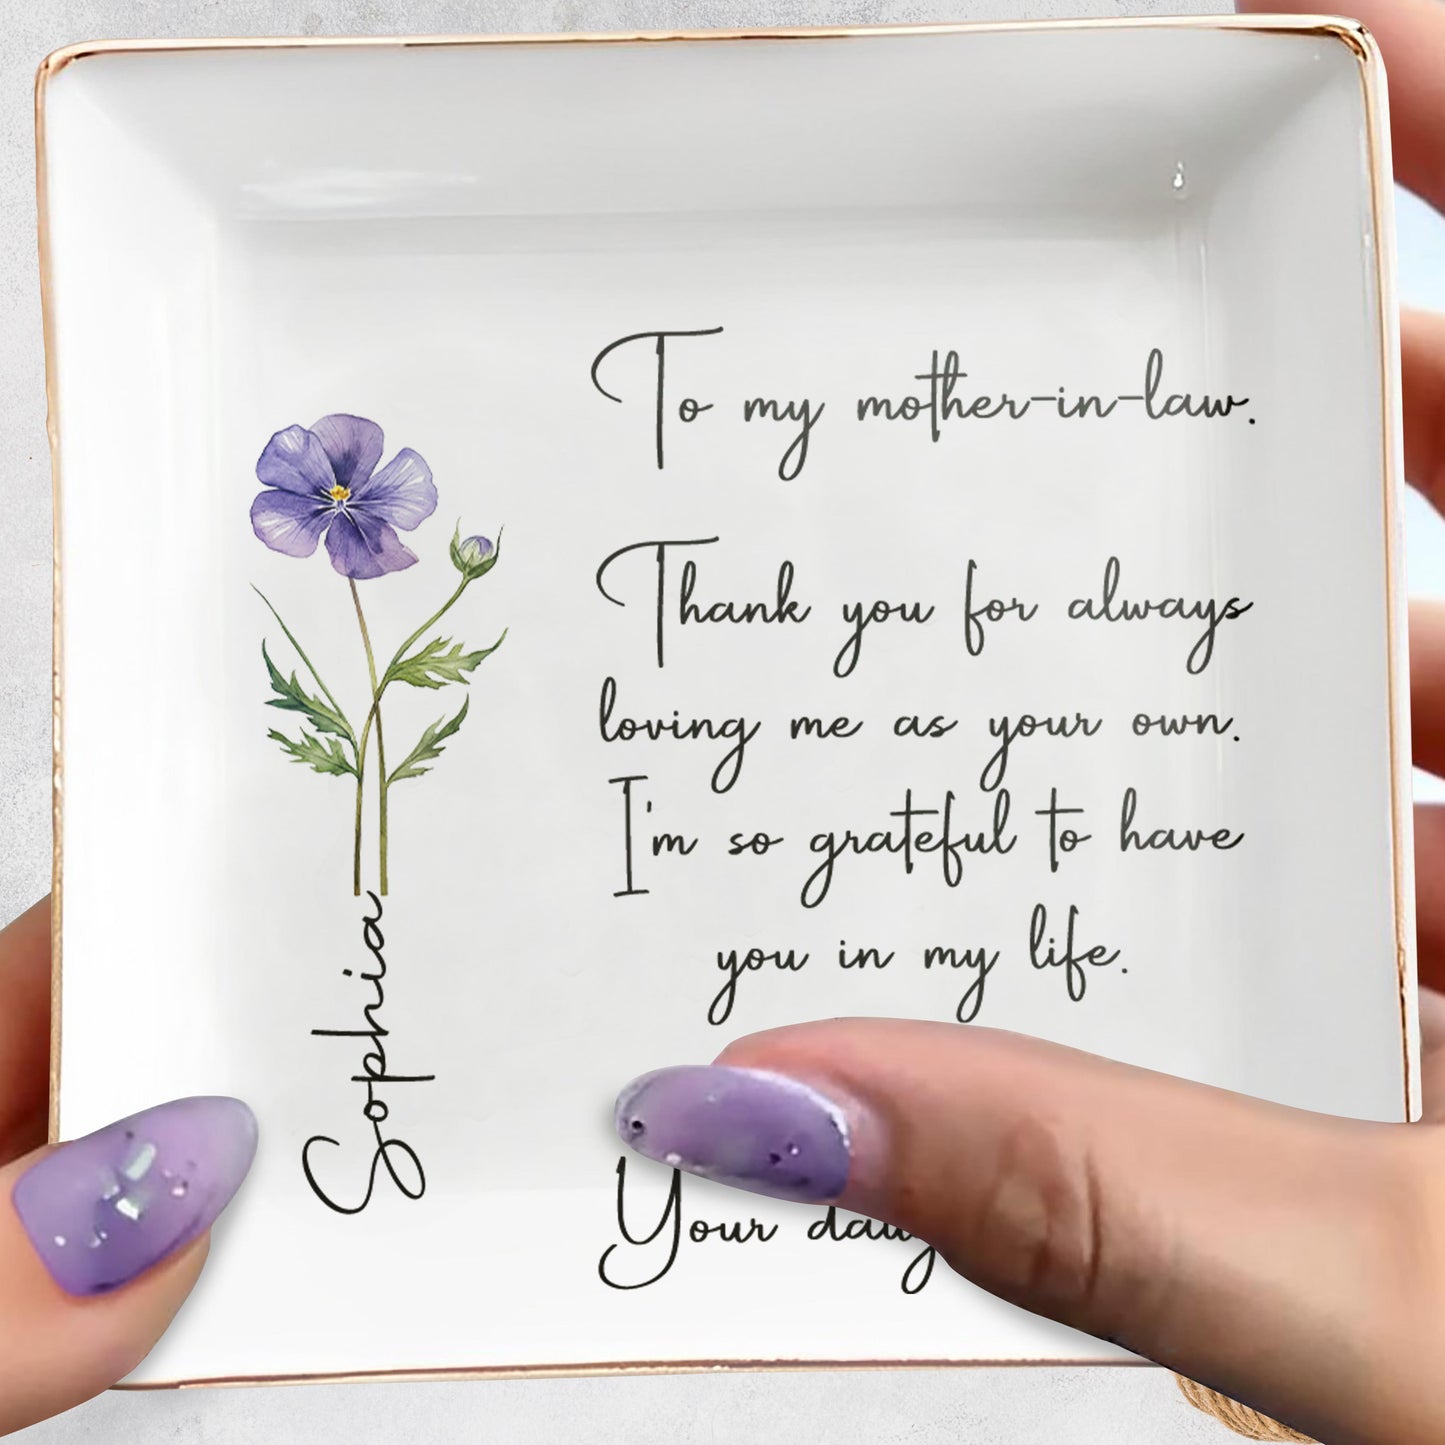 To my mother-in-law.
Thank you for always
loving me as your own.
I'm so grateful to have
you in my life.
Your
Sophia